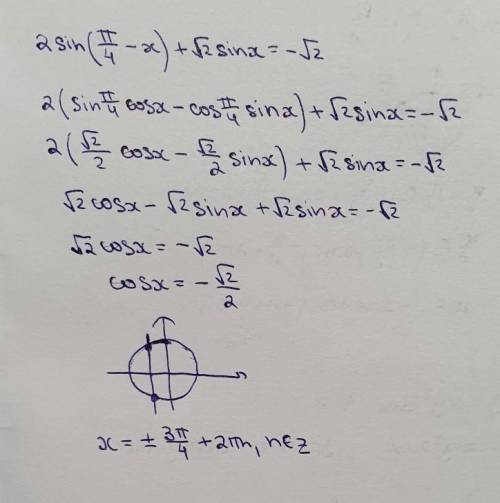 2 sin(π/4 - x) + √2 sinx = -√2
2(sin π/4 cosx - cos π/4 sinx) + √2 sinx = -√2
2(√2/2 cosx - √2/2 sinx) + √2 sinx = -√2
√2 cosx - √2 sinx + √2 sinx = -√2
√2 cosx = -√2
cosx = -√2/2
x = ± 3π/4 + 2πn, n∈Z